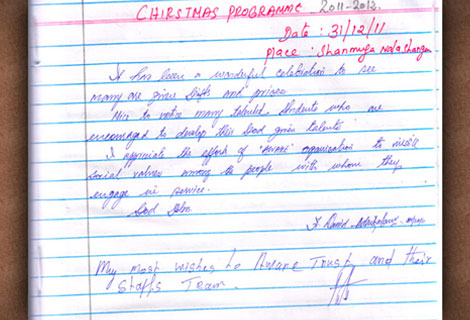 CHIRSTMAS PROGRAMME 2011-2012.
Date : 31/12/11
Place : Shanmuga
It has been a wonderful celebration to see
many are given gifts and prizes
Nice to notice many talented students who are
encouraged to develop their God given talents
I appreciate the efforts of "Aware" organisation to
social values among the people with whom they
engage in service.
God bless
David
My most wishes to Aware Trust and their
Staffs Team.